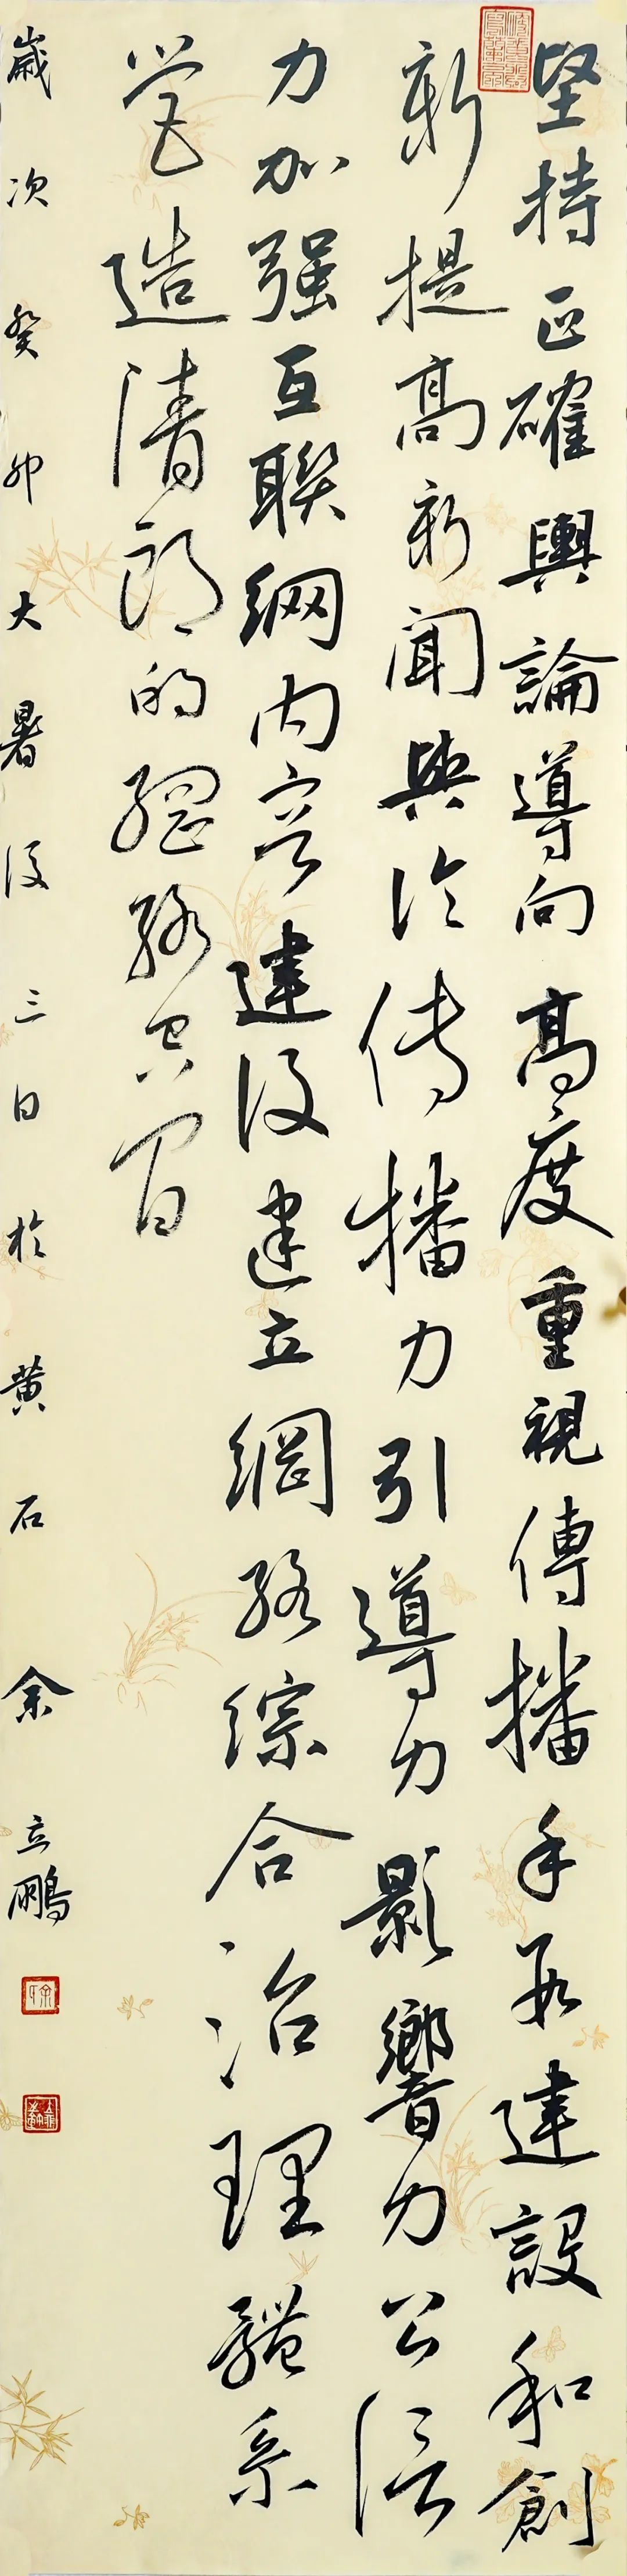 堅持正確輿論導向高度重視傳播手段建設和創
新提高新聞輿論傳播力引導力影響力公信
力加强互聯網内容建設建立網絡綜合治理體系
營造清朗的網絡空間
歲次癸卯大暑後三日於黃石余立鵬